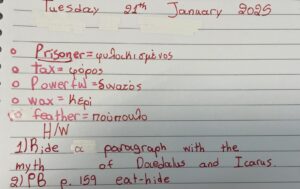 Tuesday 21th January 2025
Prisoner=φυλακισμένος
Tax=φόρος
Powerful=δυνατός
wax=κερί
feather=πούπουλο
H/W
1) Ride a paragraph with the
myth of Daedalus and Icarus.
2) PB p. 159 eat-hide